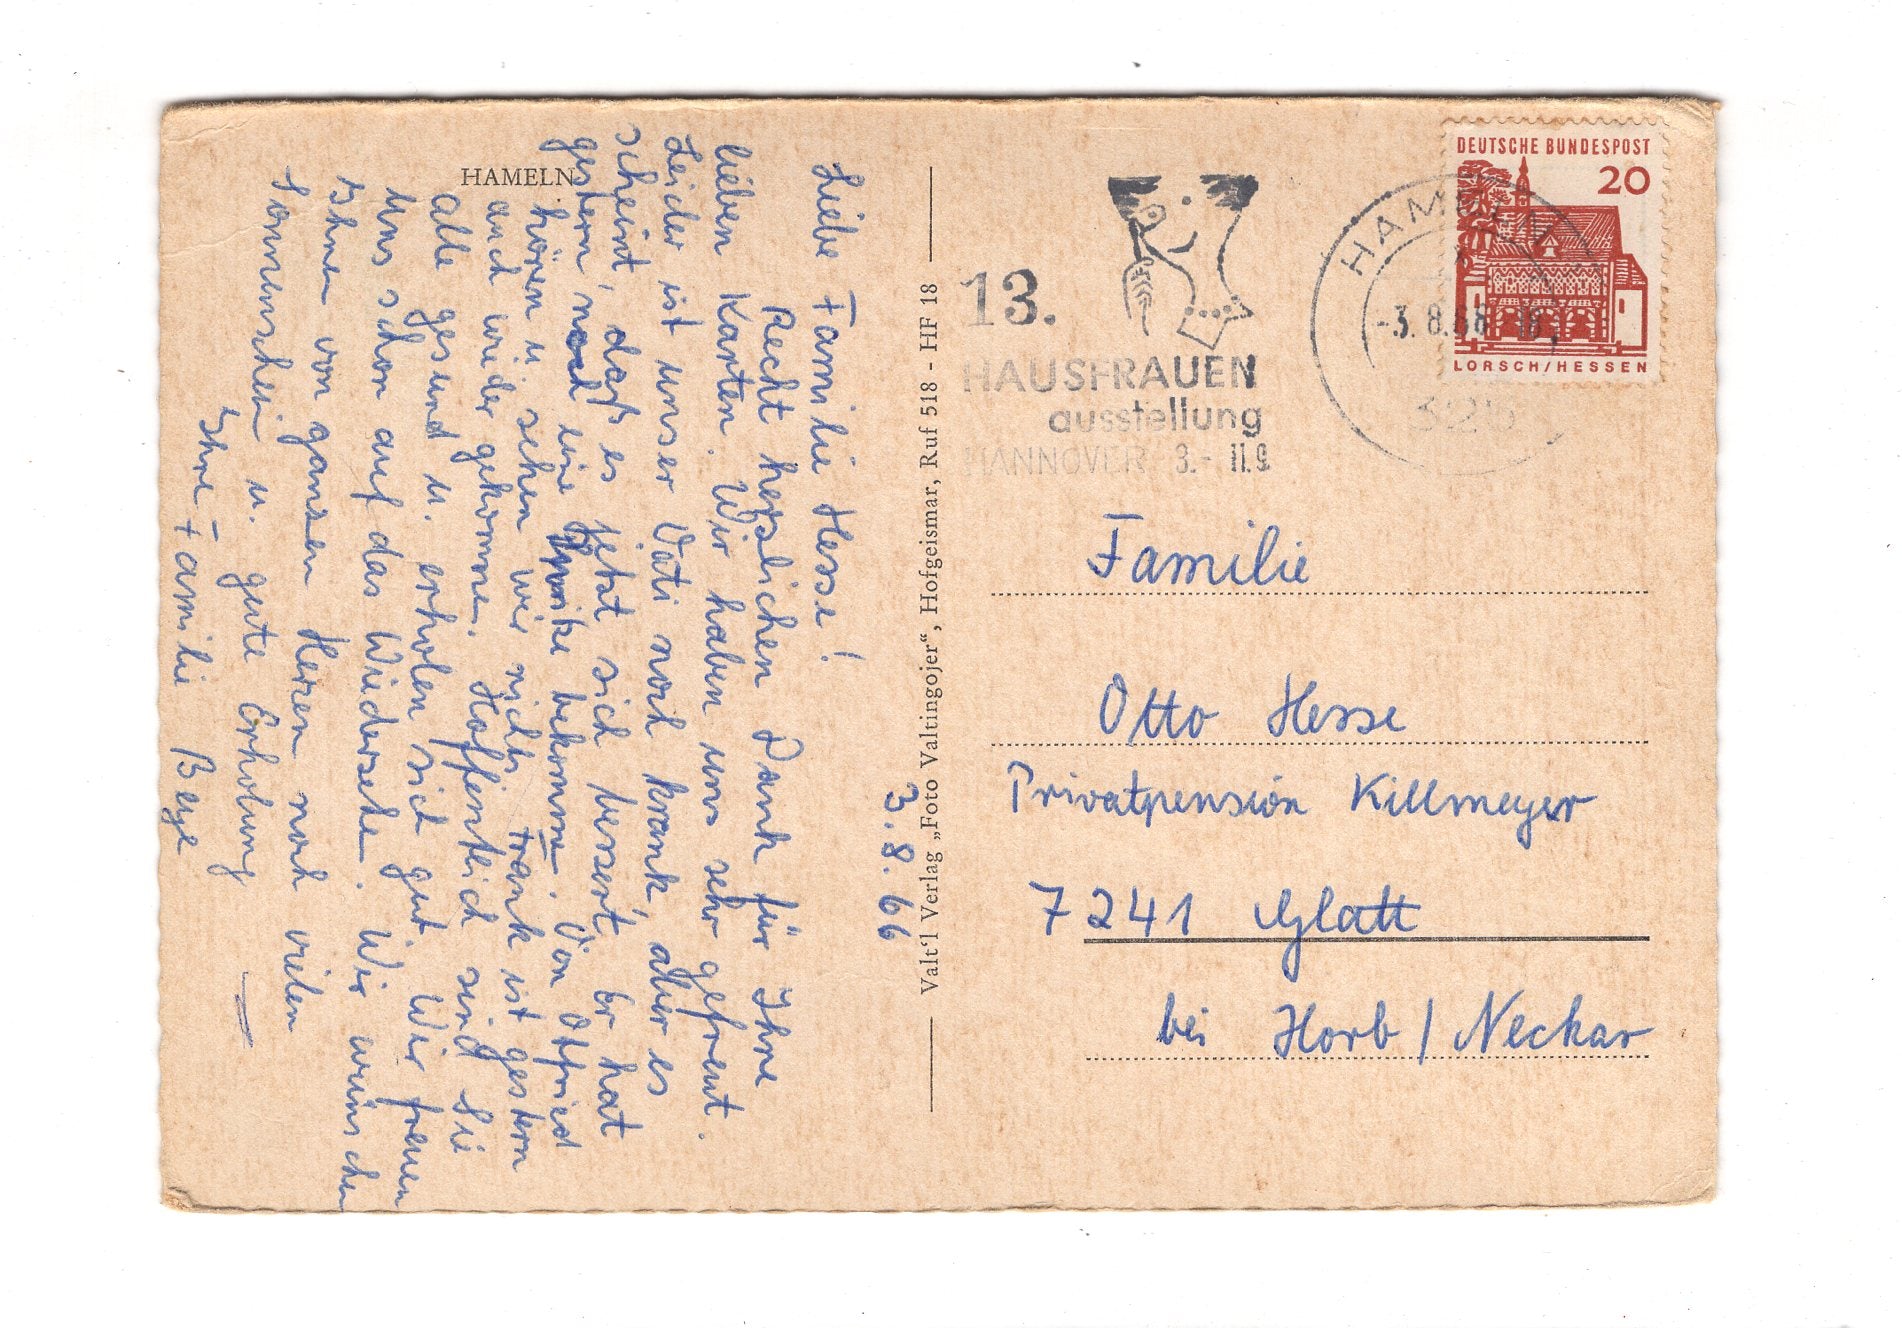 HAMELN
3.8.66
Liebe Familie Hesse!
Recht herzlichen Dank für Ihre
lieben Karten. Wir haben uns sehr gefreut.
Leider ist unser Vati noch krank, aber es
scheint, daß es jetzt sich bessert. Er hat
gestern, noch eine bekommen. Von Otfried
hören u. sehen wir nichts, Frank ist gestern
auch wieder gekommen. Hoffentlich sind Sie
alle gesund u. erholen sich gut. Wir freuen
uns schon auf das Wiedersehen. Wir wünschen
Ihnen von ganzen Herzen noch vielen
Sonnenschein u. gute Erholung
Ihre Familie Beye
Valt'l Verlag „Foto Valtingojer“, Hofgeismar, Ruf 518 - HF 18
13.
HAUSFRAUEN
ausstellung
HANNOVER 3.- 11.9
DEUTSCHE BUNDESPOST
20
LORSCH/HESSEN
HAMELN 1
-3.8.66 18
325
Familie
Otto Hesse
Privatpension Killmeyer
7241 Glatt
bei Horb / Neckar